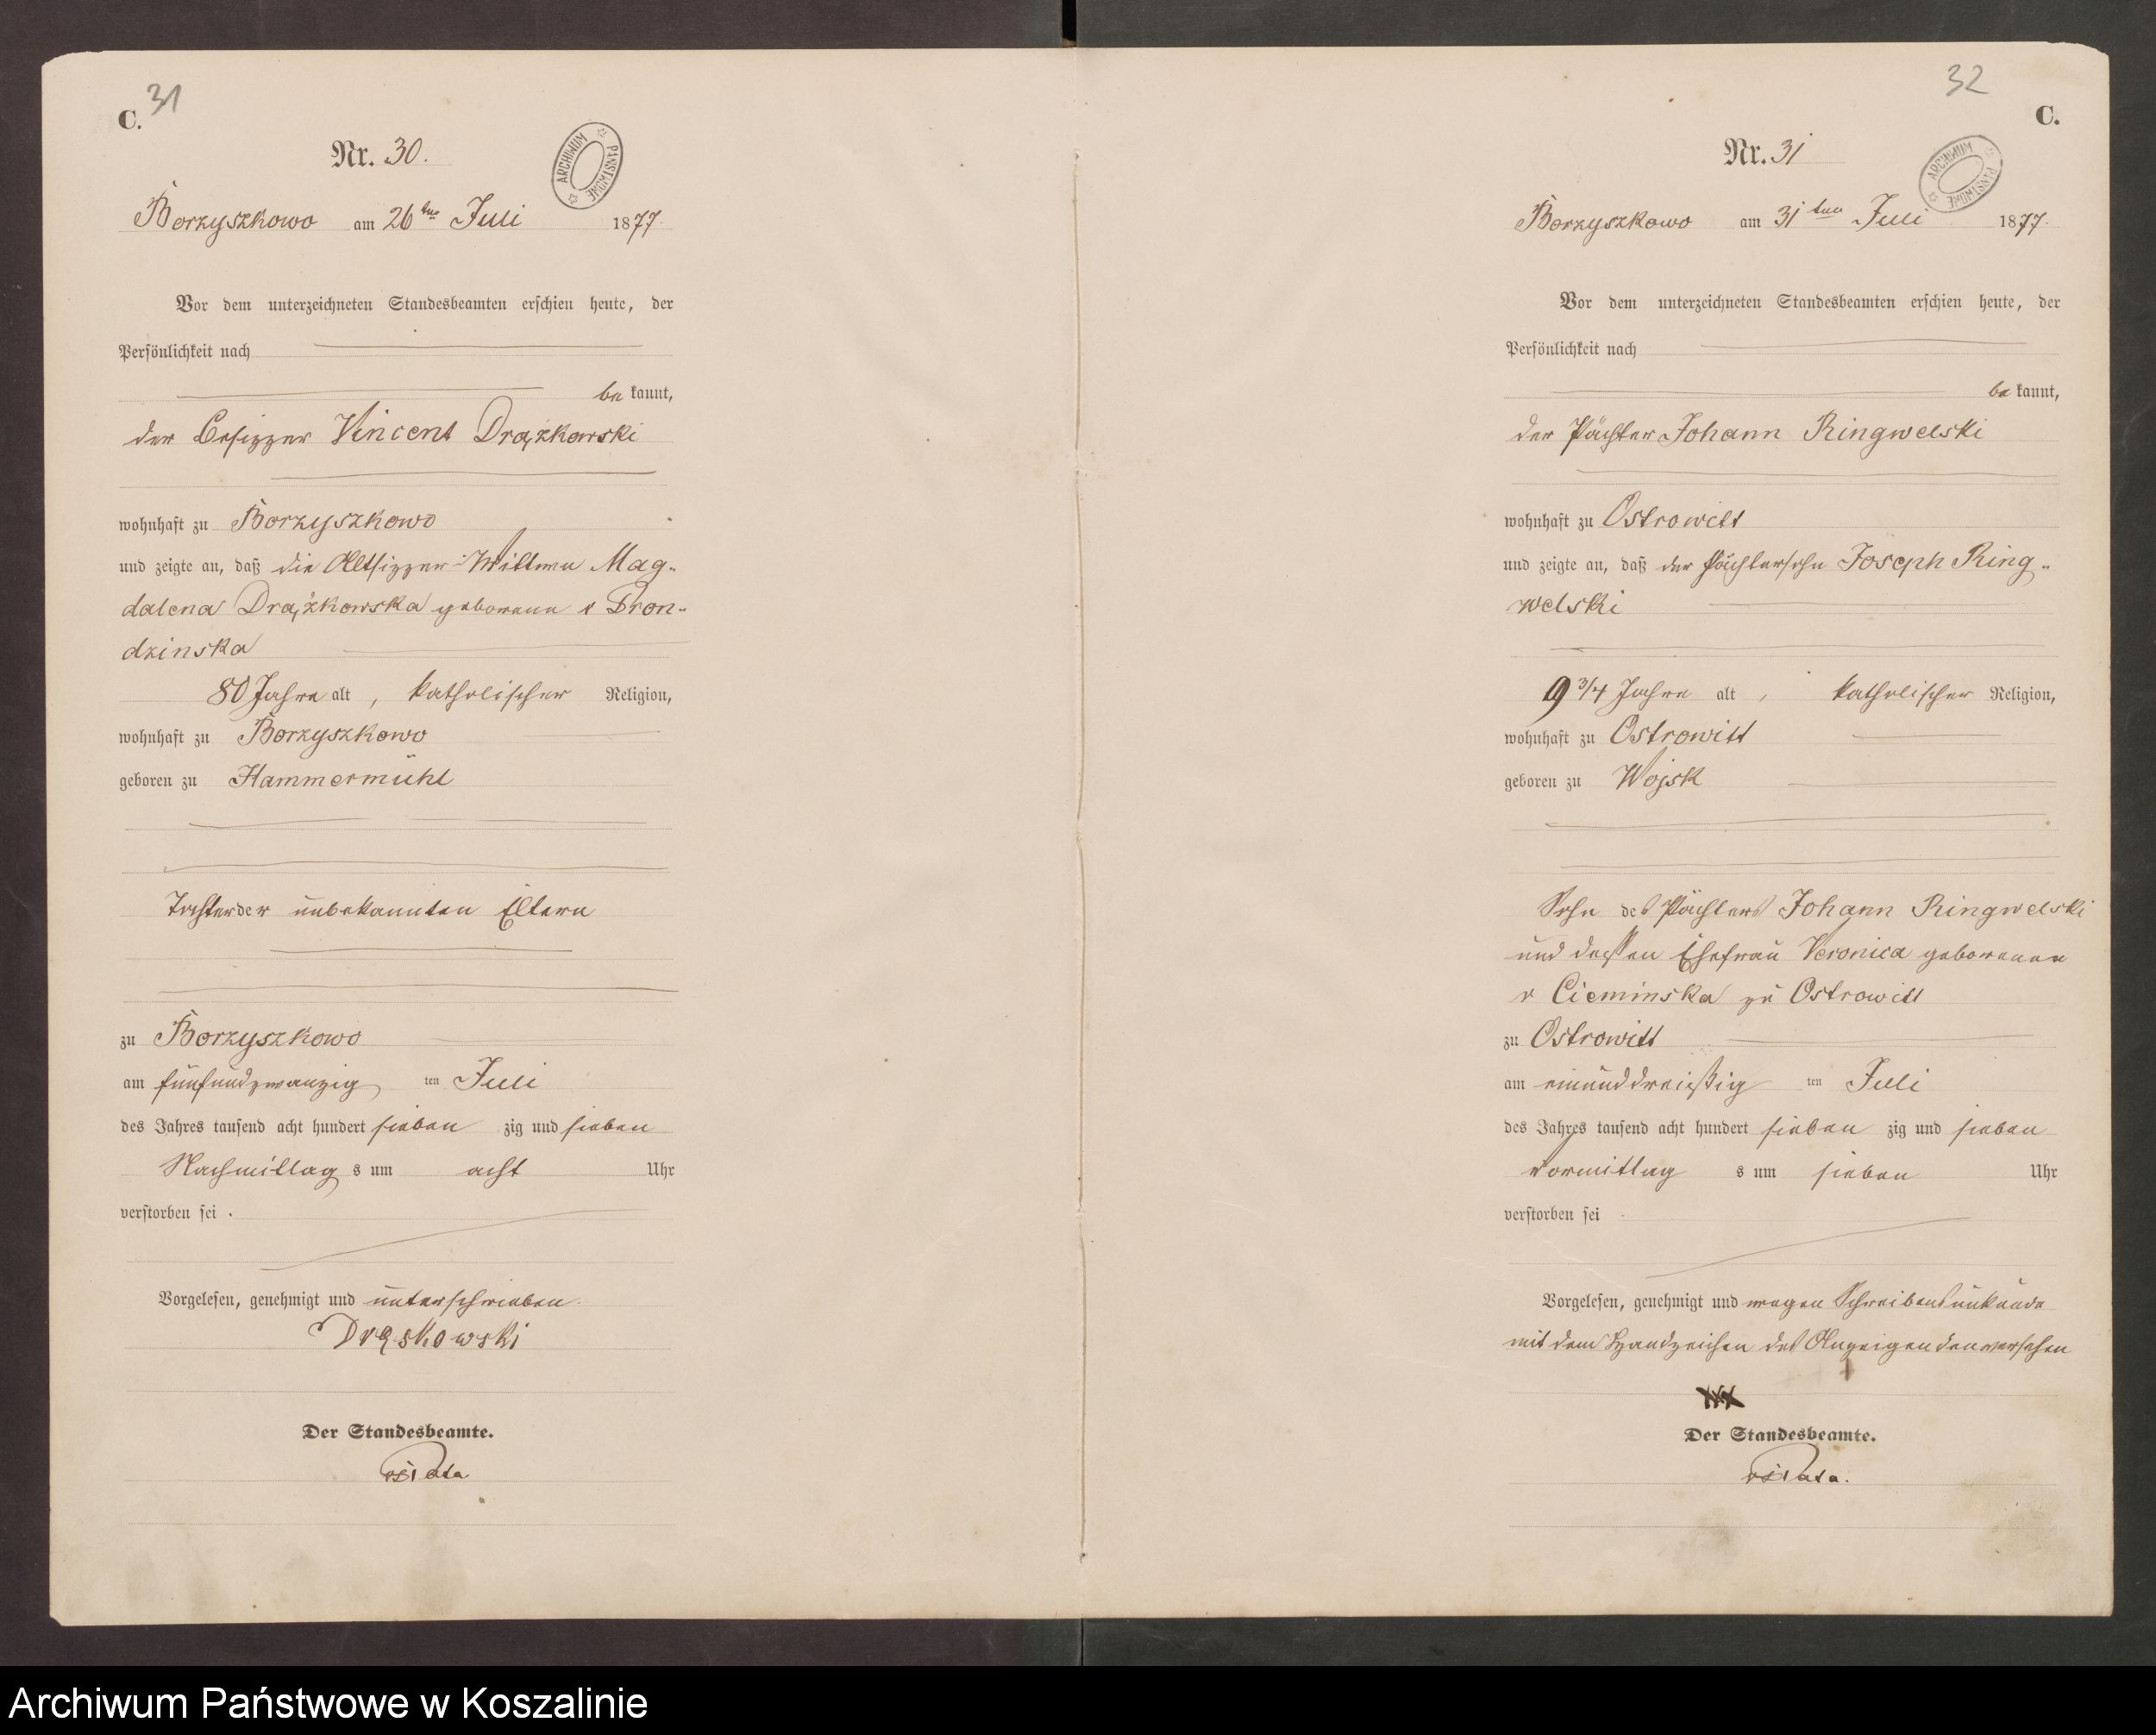 31
C.
Nr. 30.
ARCHIWUM PAŃSTWOWE
Borzyszkowo am 26ten Juli 1877.
Vor dem unterzeichneten Standesbeamten erschien heute, der
Persönlichkeit nach
bekannt,
der Besitzer Vincent Drążkowski
wohnhaft zu Borzyszkowo
und zeigte an, daß die Altsitzer-Wittwe Mag-
dalena Drążkowska geborene v Pron-
dzinska
80 Jahre alt, katholischer Religion,
wohnhaft zu Borzyszkowo
geboren zu Hammermühl
Tochter der unbekannten Eltern
zu Borzyszkowo
am fünfundzwanzigten Juli
des Jahres tausend acht hundert siebenzig und sieben
Nachmittags um acht Uhr
verstorben sei.
Vorgelesen, genehmigt und unterschrieben.
Drąskowski
Der Standesbeamte.
32
C.
Nr. 31
ARCHIWUM PAŃSTWOWE
Borzyszkowo am 31ten Juli 1877.
Vor dem unterzeichneten Standesbeamten erschien heute, der
Persönlichkeit nach
bekannt,
der Pächter Johann Ringwelski
wohnhaft zu Ostrowitt
und zeigte an, daß der Pächtersohn Joseph Ring-
welski
9 3/4 Jahre alt, katholischer Religion,
wohnhaft zu Ostrowitt
geboren zu Wojsk
Sohn des Pächters Johann Ringwelski
und dessen Ehefrau Veronica geborenen
v Cieminska zu Ostrowitt
zu Ostrowitt
am einunddreißigten Juli
des Jahres tausend acht hundert siebenzig und sieben
Vormittags um sieben Uhr
verstorben sei
Vorgelesen, genehmigt und wegen Schreibensunkunde
mit dem Handzeichen des Anzeigenden versehen
XXX
Der Standesbeamte.
Archiwum Państwowe w Koszalinie